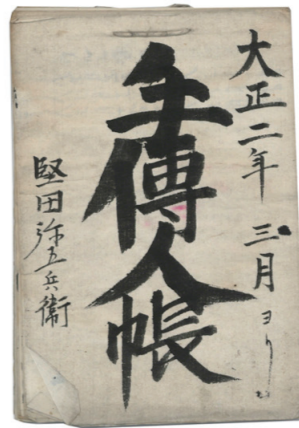 大正二年三月ヨリ
手傳人帳
堅田弥五兵衛